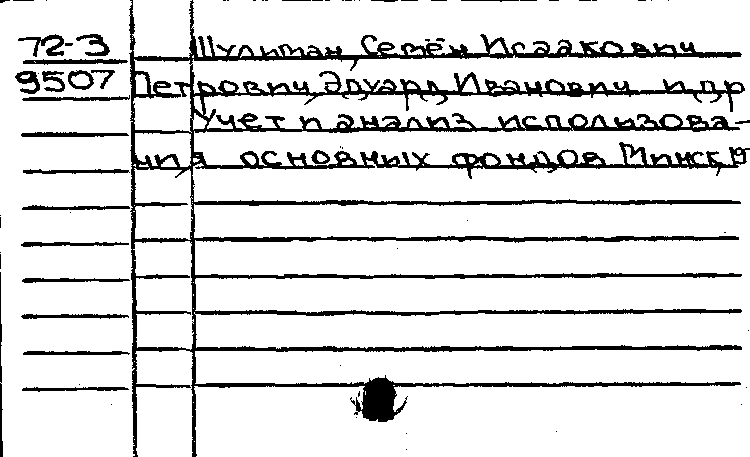 72-3 Шулиман, Семён Исаакович
9507 Петрович, Эдуард Иванович и др
Учет и анализ использова-
ния основных фондов Минск, 19